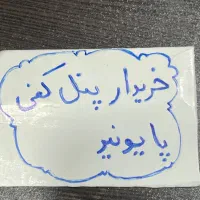 خریدار پنل کفی
پایونیر